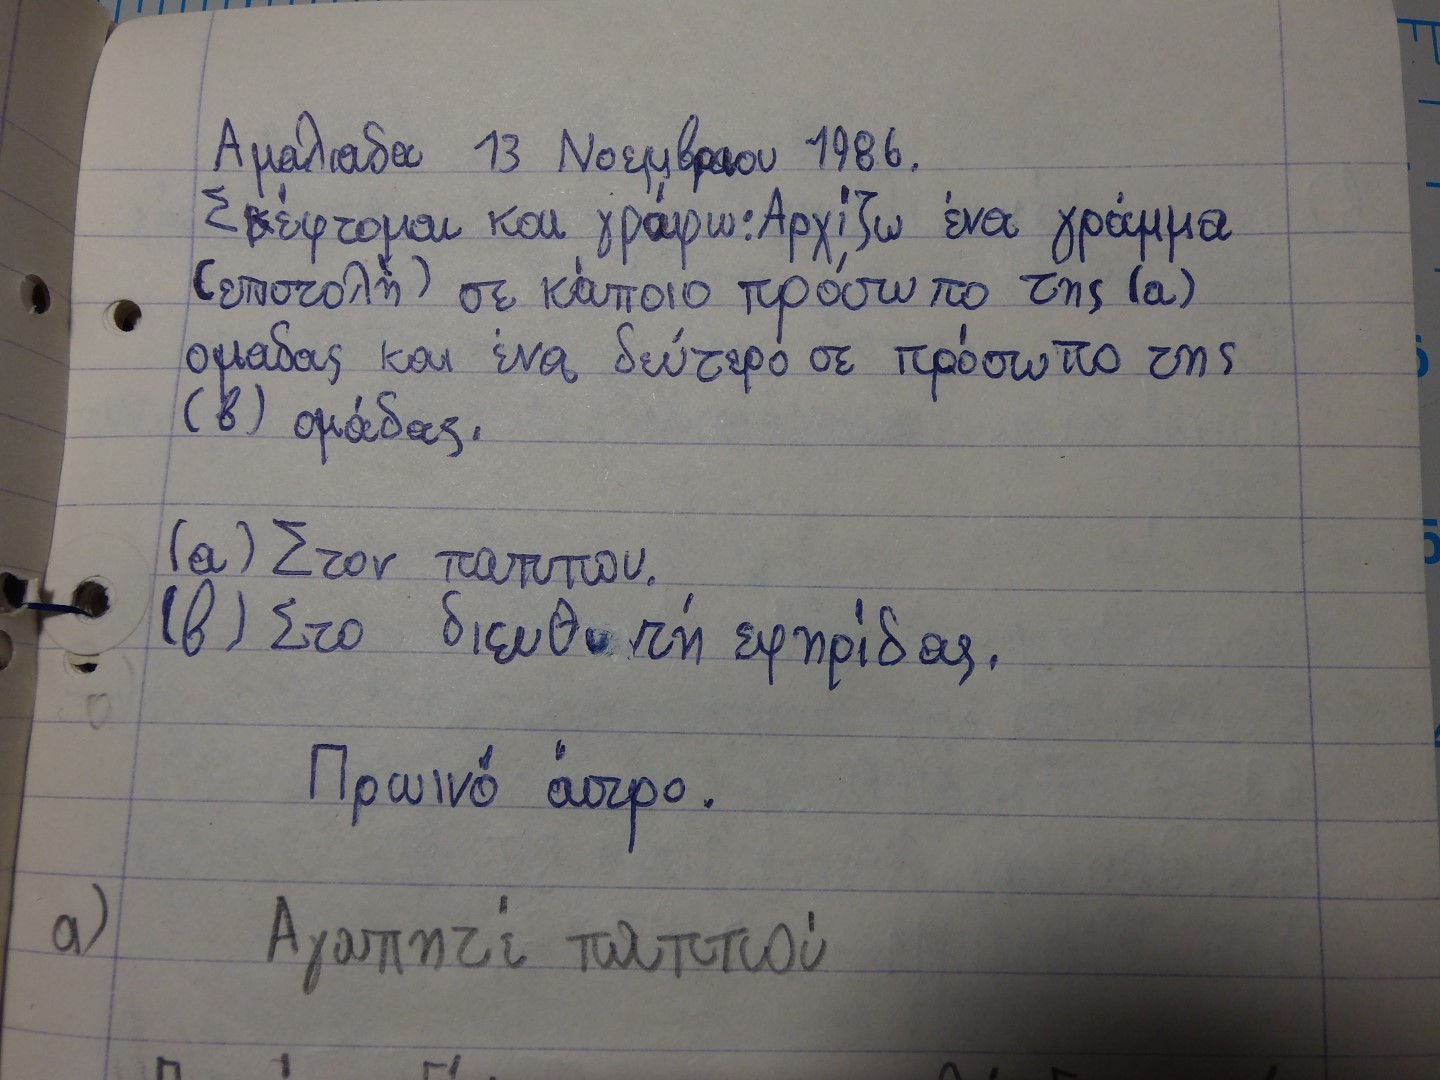 Αμαλιαδα 13 Νοεμβριου 1986.
Σκέφτομαι και γράφω: Αρχίζω ένα γράμμα
(επιστολή) σε κάποιο πρόσωπο της (α)
ομαδας και ένα δεύτερο σε πρόσωπο της
(β) ομάδας.
(α) Στον παππου.
(β) Στο διευθυντή εφηρίδας.
Πρωινό άστρο.
α) Αγαπητέ παππού